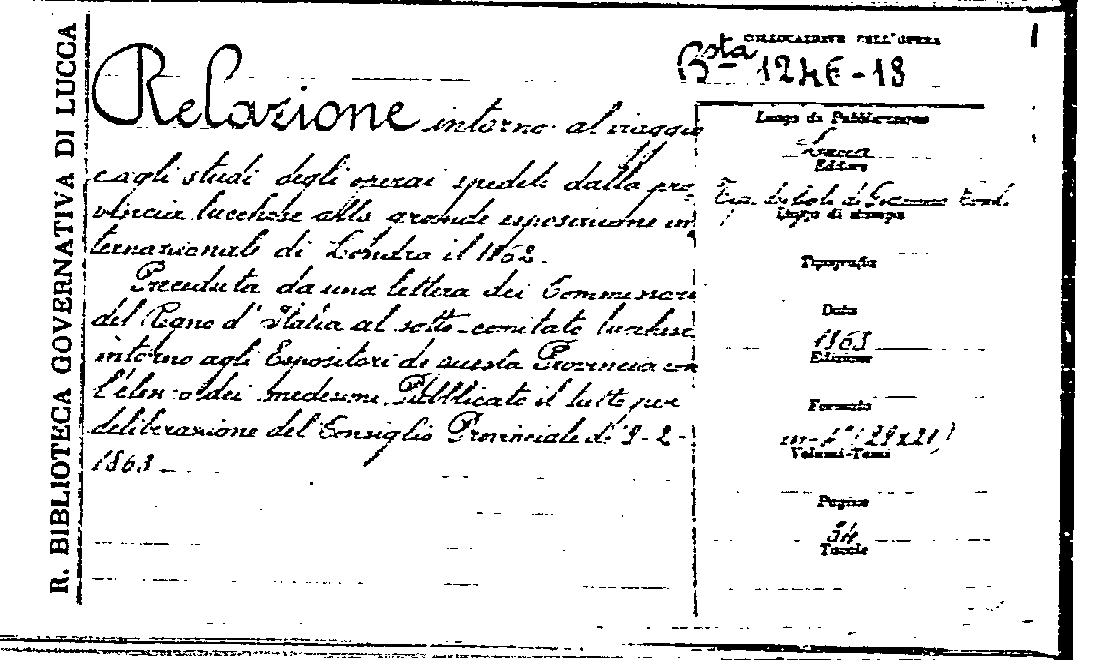 R. BIBLIOTECA GOVERNATIVA DI LUCCA
COLLOCAZIONE DELL'OPERA
Bsta 1246-18
Relazione intorno al viaggio
e agli studi degli operai spediti dalla pro-
vincia lucchese alla grande esposizione in
ternazionale di Londra il 1862.
Preceduta da una lettera dei Commissari
del Regno d'Italia al sotto-comitato lucchese
intorno agli Espositori di questa Provincia con
l'elenco dei medesimi. Pubblicato il tutto per
deliberazione del Consiglio Provinciale di 9-2-
1863
Luogo di Pubblicazione
Lucca
Editore
Tip. di
Luogo di stampa
Tipografia
Data
1863
Edizione
Formato
in-4° (29x21)
Volumi-Tomi
Pagine
54
Tavole